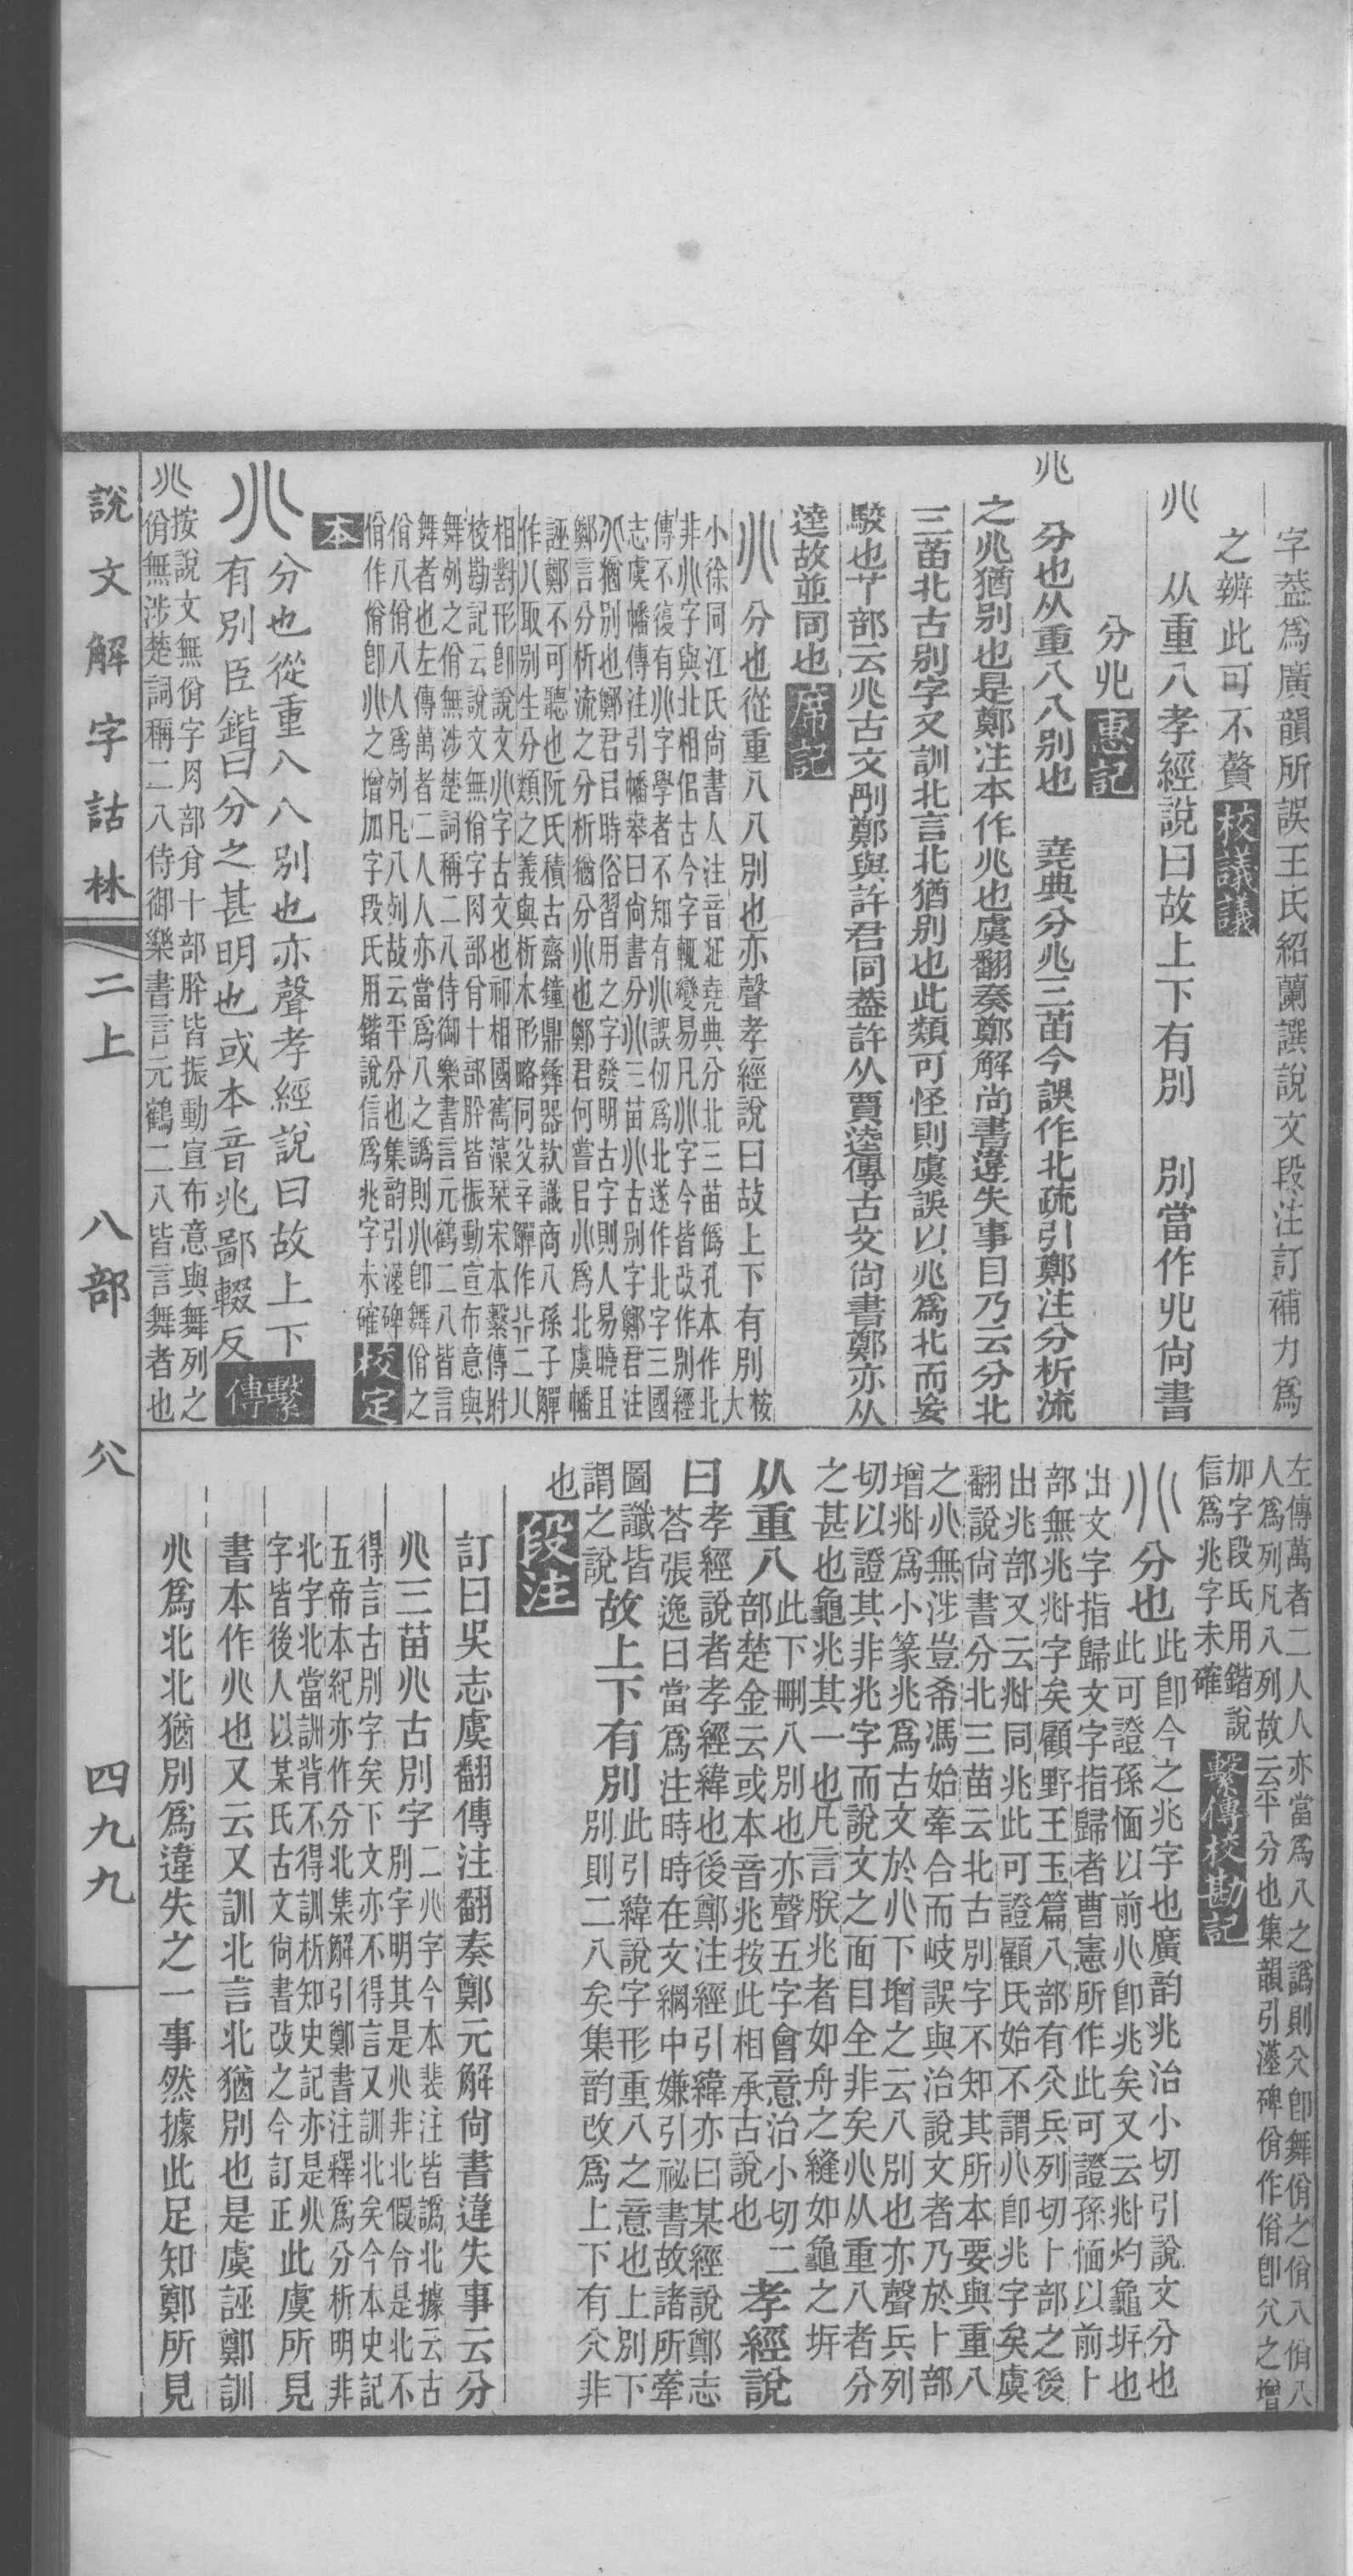 字葢爲廣韻所誤王氏紹蘭譔說文段注訂補力爲
之辨此可不贅校議議
从重八孝經說曰故上下有別 別當作𠔁尙書
分𠔁惠記
分也从重八八别也 堯典分𠔁三苗今誤作北疏引鄭注分析流
之𠔁猶别也是鄭注本作𠔁也虞翻奏鄭解尙書違失事目乃云分北
三苗北古别字又訓北言北猶别也此類可怪則虞誤以𠔁爲北而妄
駮也艹部云𠔁古文別鄭與許君同葢許从賈逵傳古文尙書鄭亦从
逵故並同也席記
分也從重八八別也亦聲孝經說曰故上下有別
按大
小徐同江氏尙書人注音疏堯典分北三苗僞孔本作北
非𠔁字與北相似古今字輒變易凡𠔁字今皆改作別經
傳不復有𠔁字學者不知有𠔁誤仞爲北遂作北字三國
志虞幡傳注引幡奏曰尙書分𠔁三苗𠔁古别字鄭君注
𠔁猶别也鄭君㠯時俗習用之字發明古字則人易曉且
鄭言分析流之分析猶分𠔁也鄭君何嘗㠯𠔁爲北虞幡
誣鄭不可聽也阮氏積古齋鐘鼎彝器款識商八孫子觶
作八取别生分類之義與析木形略同父辛觶作二八
相對形卽說文𠔁字古文也祁相國寯藻栞宋本繫傳附
校勘記云說文無佾字肉部䏌十部肸皆振動宣布意與
舞列之佾無涉楚詞稱二八侍御樂書言元鶴二八皆言
舞者也左傳萬者二人人亦當爲八之譌則𠔁卽舞佾之
佾八佾八人爲列凡八列故云平分也集韵引漢碑
佾作䏌卽𠔁之增加字段氏用鍇說信爲兆字未確校定
本
分也從重八八別也亦聲孝經說曰故上下
有別臣鍇曰分之甚明也或本音兆鄙輟反繫傳
按說文無佾字肉部䏌十部肸皆振動宣布意與舞列之
佾無涉楚詞稱二八侍御樂書言元鶴二八皆言舞者也
說文解字詁林 二上 八部 𠔁 四九九
左傳萬者二人人亦當爲八之譌則𠔁卽舞佾之佾八佾八
人爲列凡八列故云平分也集韻引漢碑佾作䏌卽𠔁之增
加字段氏用鍇說
信爲兆字未確繫傳校勘記
分也此卽今之兆字也廣韵兆治小切引說文分也
此可證孫愐以前𠔁卽兆矣又云𠧞灼龜坼也
出文字指歸文字指歸者曹憲所作此可證孫愐以前卜
部無兆𠧞字矣顧野王玉篇八部有𠔁兵列切卜部之後
出兆部又云𠧞同兆此可證顧氏始不謂𠔁卽兆字矣虞
翻說尙書分北三苗云北古別字不知其所本要與重八
之𠔁無涉豈希馮始牽合而岐誤與治說文者乃於卜部
增𠧞爲小篆兆爲古文於𠔁下增之云八別也亦聲兵列
切以證其非兆字而說文之面目全非矣𠔁从重八者分
之甚也龜兆其一也凡言朕兆者如舟之縫如龜之坼
从重八此下刪八別也亦聲五字會意治小切二
部楚金云或本音兆按此相承古說也孝經說
曰孝經說者孝經緯也後鄭注經引緯亦曰某經說鄭志
荅張逸曰當爲注時時在文綱中嫌引祕書故諸所牽
圖讖皆
謂之說故上下有別此引緯說字形重八之意也上別下
別則二八矣集韵改爲上下有𠔁非
也段注
訂曰吳志虞翻傳注翻奏鄭元解尙書違失事云分
𠔁三苗𠔁古別字二𠔁字今本裴注皆譌北據云古
別字明其是𠔁非北假令是北不
得言古別字矣下文亦不得言又訓北矣今本史記
五帝本紀亦作分北集解引鄭書注釋爲分析明非
北字北當訓背不得訓析知史記亦是𠔁此虞所見
字皆後人以某氏古文尙書改之今訂正
書本作𠔁也又云又訓北言北猶別也是虞誣鄭訓
𠔁爲北北猶別爲違失之一事然據此足知鄭所見